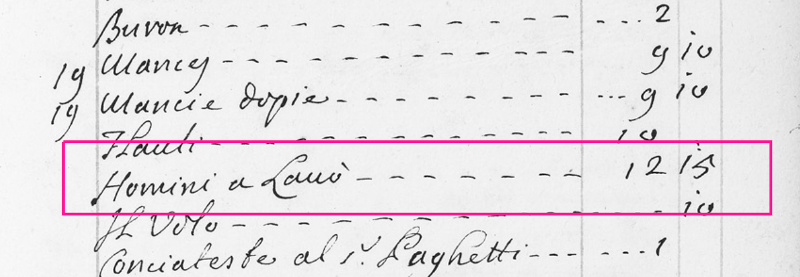 Buron - - - - - - - - - - - ... 2
19 Mancey - - - - - - - - - - - 9 10
19 Mancie dopie - - - - - - - ... 9 10
Flauti - - - - - - - - - - - 10
Homini a Lauò - - - - - - - 12 15
Il Volo - - - - - - - - - - - 10
Conciateste al s.r Laghetti - - - - ... 1